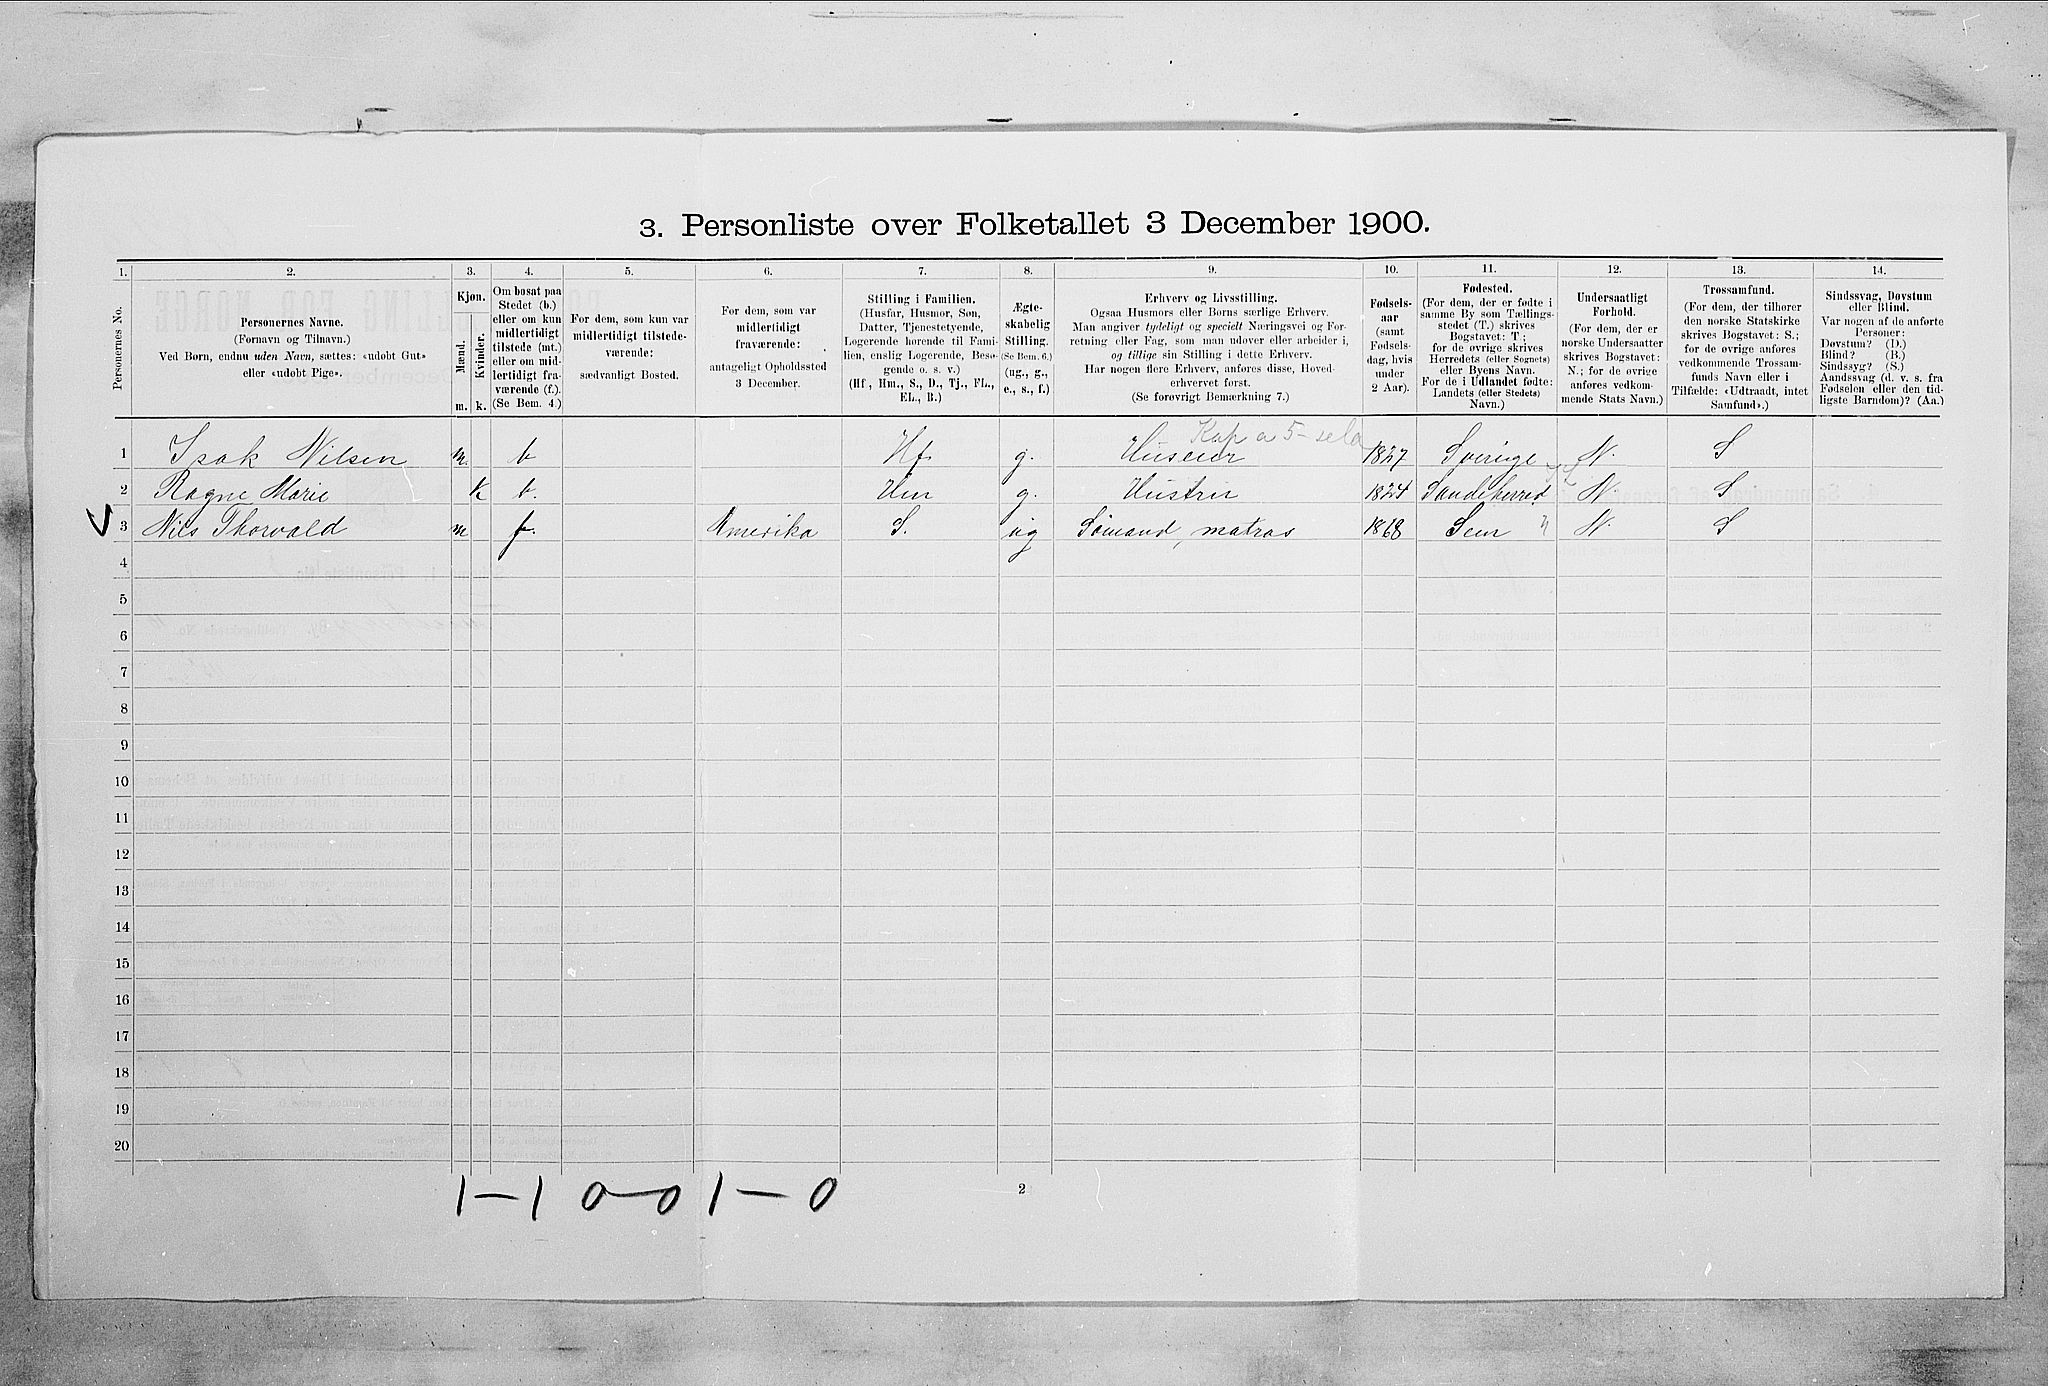 3. Personliste over Folketallet 3 December 1900.
1. 2. 3. 4. 5. 6. 7. 8. 9. 10. 11. 12. 13. 14.
Personernes No.
Personernes Navne.
(Fornavn og Tilnavn.)
Ved Børn, endnu uden Navn, sættes: «udøbt Gut»
eller «udøbt Pige».
Kjøn.
Mænd.
Kvinder.
m. k.
Om bosat paa
Stedet (b.)
eller om kun
midlertidigt
tilstede (mt.)
eller om mid-
lertidigt fra-
værende (f.).
(Se Bem. 4.)
For dem, som kun var
midlertidigt tilstede-
værende:
sædvanligt Bosted.
For dem, som var
midlertidigt
fraværende:
antageligt Opholdssted
3 December.
Stilling i Familien.
(Husfar, Husmor, Søn,
Datter, Tjenestetyende,
Logerende hørende til Fami-
lien, enslig Logerende, Besø-
gende o. s. v.)
(Hf., Hm., S., D., Tj., FL.,
EL., B.)
Ægte-
skabelig
Stilling.
(Se Bem. 6.)
(ug., g.,
e., s., f.)
Erhverv og Livsstilling.
Ogsaa Husmors eller Børns særlige Erhverv.
Man angiver tydeligt og specielt Næringsvei og For-
retning eller Fag, som man udøver eller arbeider i,
og tillige sin Stilling i dette Erhverv.
Har nogen flere Erhverv, anføres disse, Hoved-
erhvervet først.
(Se forøvrigt Bemærkning 7.)
Fødsels-
aar
(samt
Fødsels-
dag, hvis
under
2 Aar).
Fødested.
(For dem, der er fødte i
samme By som Tællings-
stedet (T.) skrives
Bogstavet: T.;
for de øvrige skrives
Herredets (eller Sognets)
eller Byens Navn.
For de i Udlandet fødte:
Landets (eller Stedets)
Navn.)
Undersaatligt
Forhold.
(For dem, der er
norske Undersaatter
skrives Bogstavet:
N.; for de øvrige
anføres vedkom-
mende Stats Navn.)
Trossamfund.
(For dem, der tilhører
den norske Statskirke
skrives Bogstavet: S.;
for de øvrige anføres
vedkommende Trossam-
funds Navn eller i
Tilfælde: «Udtraadt, intet
Samfund».)
Sindssvag, Døvstum
eller Blind.
Var nogen af de anførte
Personer:
Døvstum? (D.)
Blind? (B.)
Sindssyg? (S.)
Aandssvag (d. v. s. fra
Fødselen eller den tid-
ligste Barndom)? (Aa.)
1 Isak Nilsen m. b Hf. g. Huseier 1827 Sverige N. S
2 Ragne Marie k b. Hm g. Hustru 1824 Sandeherred N. S
3 Nils Thorvald m f. Amerika S. ug Sømand, matros 1868 Sem N. S
4
5
6
7
8
9
10
11
12
13
14
15
16
17
18
19
20
1–1 0–0 1–0
2